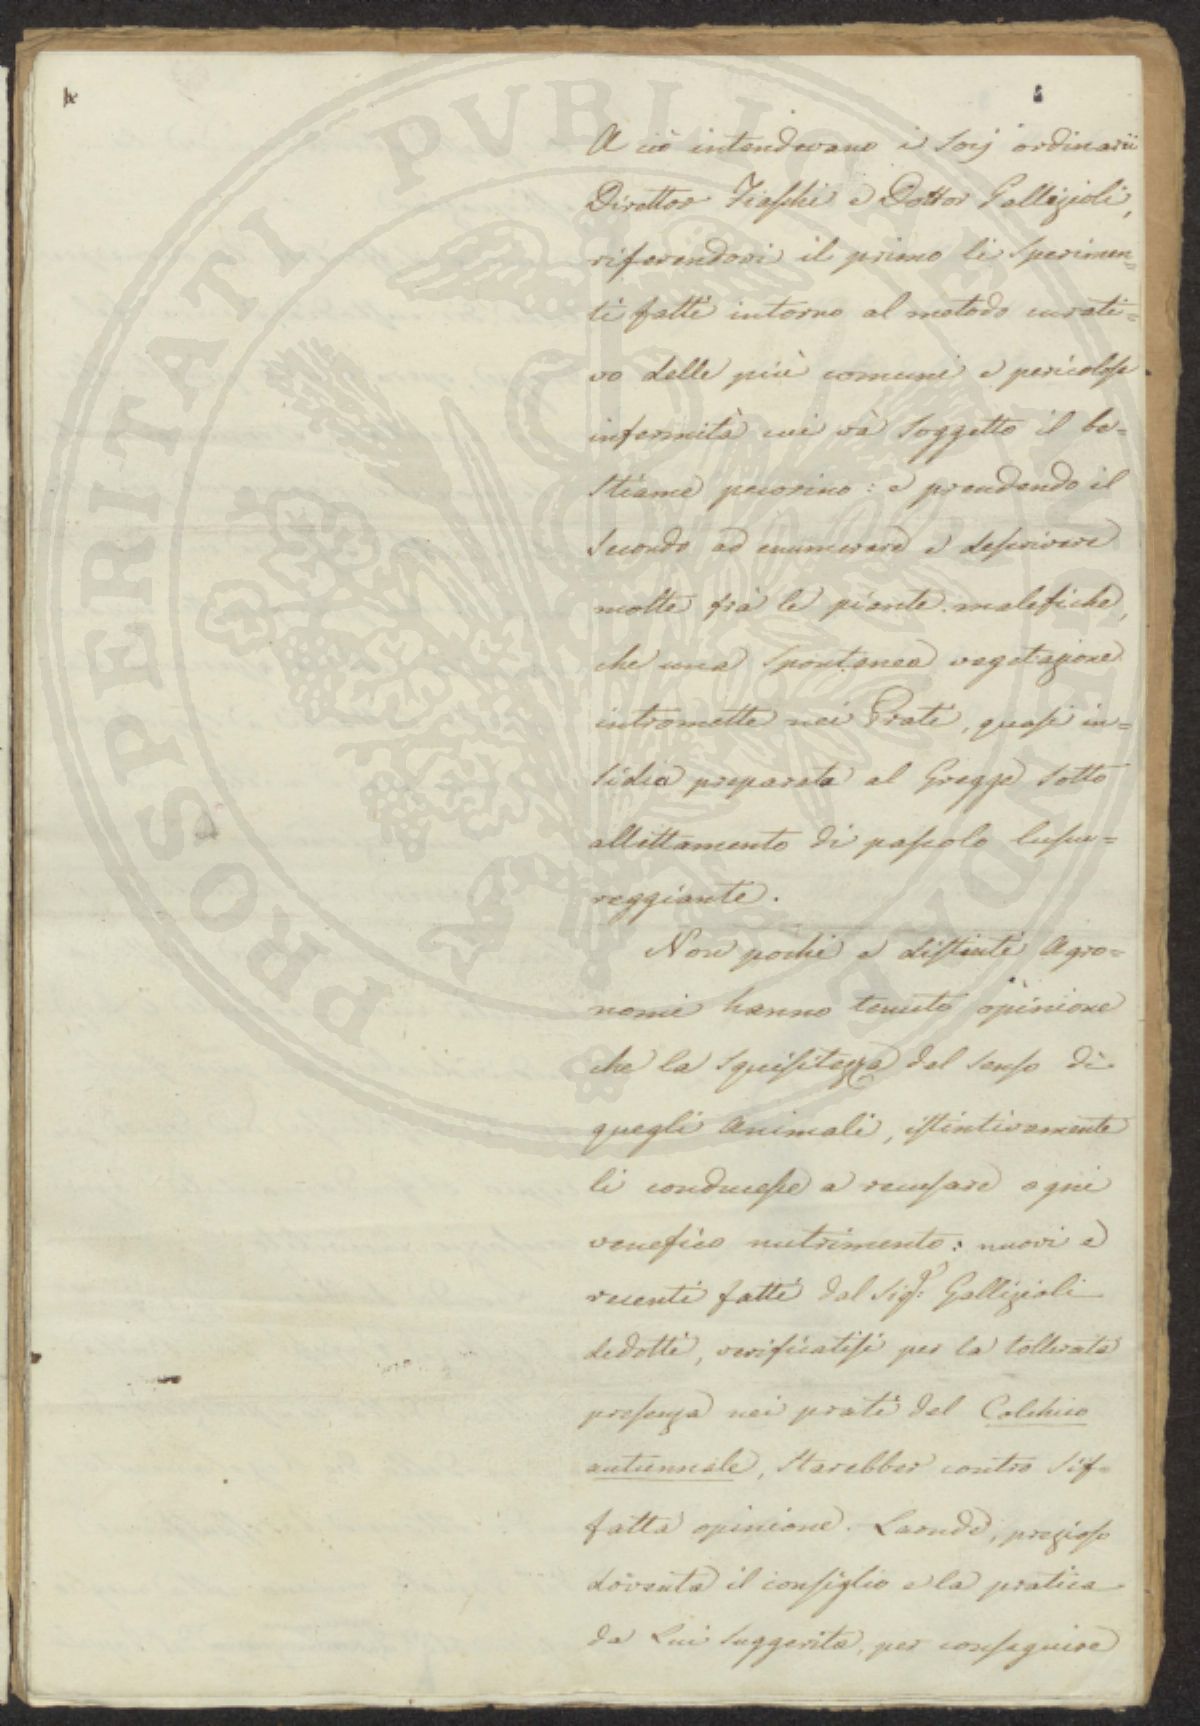 PROSPERITATI PUBLICAE AUGENDAE
A ciò intendevano i Socj ordinarii
Direttor Fiaschi e Dottor Gallizioli,
riferendovi il primo li sperimen=
ti fatti intorno al metodo curati=
vo delle più comuni e pericolose
infermità cui và soggetto il be=
stiame pecorino: e prendendo il
secondo ad enumerare e descrivere
molte frà le piante malefiche,
che una spontanea vegetazione
intromette nei Prati, quasi in=
sidia preparata al Gregge sotto
allettamento di pascolo lussu=
reggiante.
Non pochi e distinti Agro=
nomi hanno tenuto opinione
che la squisitezza del senso di
quegli Animali, istintivamente
li conducesse a recusare ogni
venefico nutrimento: nuovi e
recenti fatti dal Sigr. Gallizioli
dedotti, verificatisi per la tollerata
presenza nei prati del Colchico
autunnale, starebber contro sif=
fatta opinione. Laonde, prezioso
diventa il consiglio e la pratica
da Lui suggerita, per conseguire